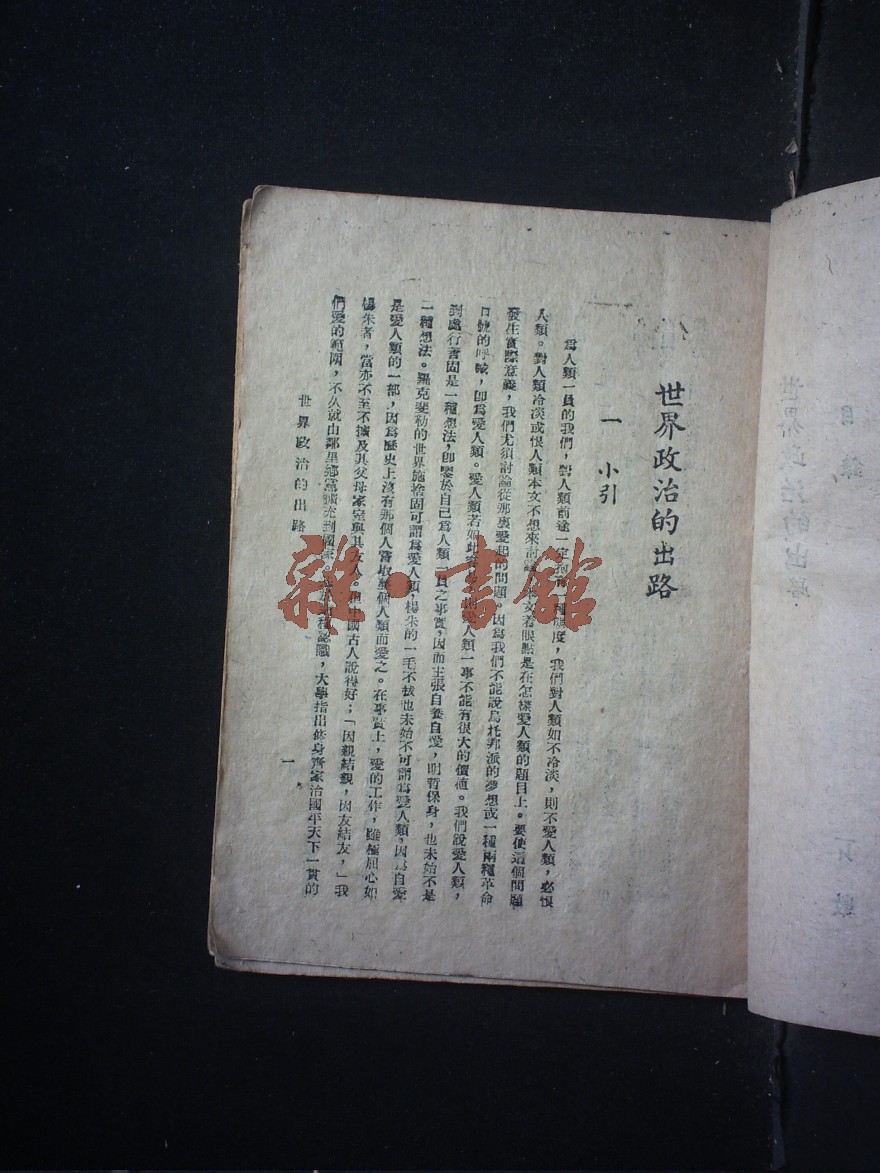 世界政治的出路
一 小引
爲人類一員的我們,對人類前途一定抱有一種態度,我們對人類如不冷淡,則不愛人類,必恨
人類。對人類冷淡或恨人類本文不想來討論,本文着眼點是在怎樣愛人類的題目上。要使這個問題
發生實際意義,我們尤須討論從那裏愛起的問題。因爲我們不能說烏托邦派的夢想或一種兩種革命
口號的呼喊,卽爲愛人類。愛人類若如此 愛人類一事不能有很大的價値。我們說愛人類,
到處行善固是一種想法,卽鑒於自己爲人類一員之事實,因而主張自養自愛,明哲保身,也未始不是
一種想法。羅克斐勒的世界施捨固可謂爲愛人類,楊朱的一毛不拔也未始不可謂爲愛人類,因爲自愛
是愛人類的一部,因爲歷史上沒有那個人嘗取整個人類而愛之。在事實上,愛的工作,雖極狠心如
楊朱者,當亦不至不擴及其父母家室與其友人。但中國古人說得好;「因親結親,因友結友,」我
們愛的範圍,不久就由鄰里鄉黨擴充到國家。 種認識,大學指出修身齊家治國平天下一貫的
世界政治的出路
一
雜·書館
目錄
世界政治的出路